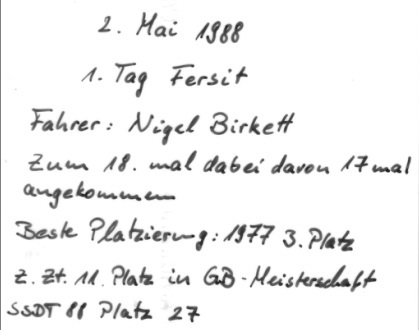 2. Mai 1988
1. Tag Fersit
Fahrer: Nigel Birkett
Zum 18. mal dabei davon 17 mal
angekommen
Beste Platzierung: 1977 3. Platz
z. Zt. 11. Platz in GB-Meisterschaft
SSDT 88 Platz 27